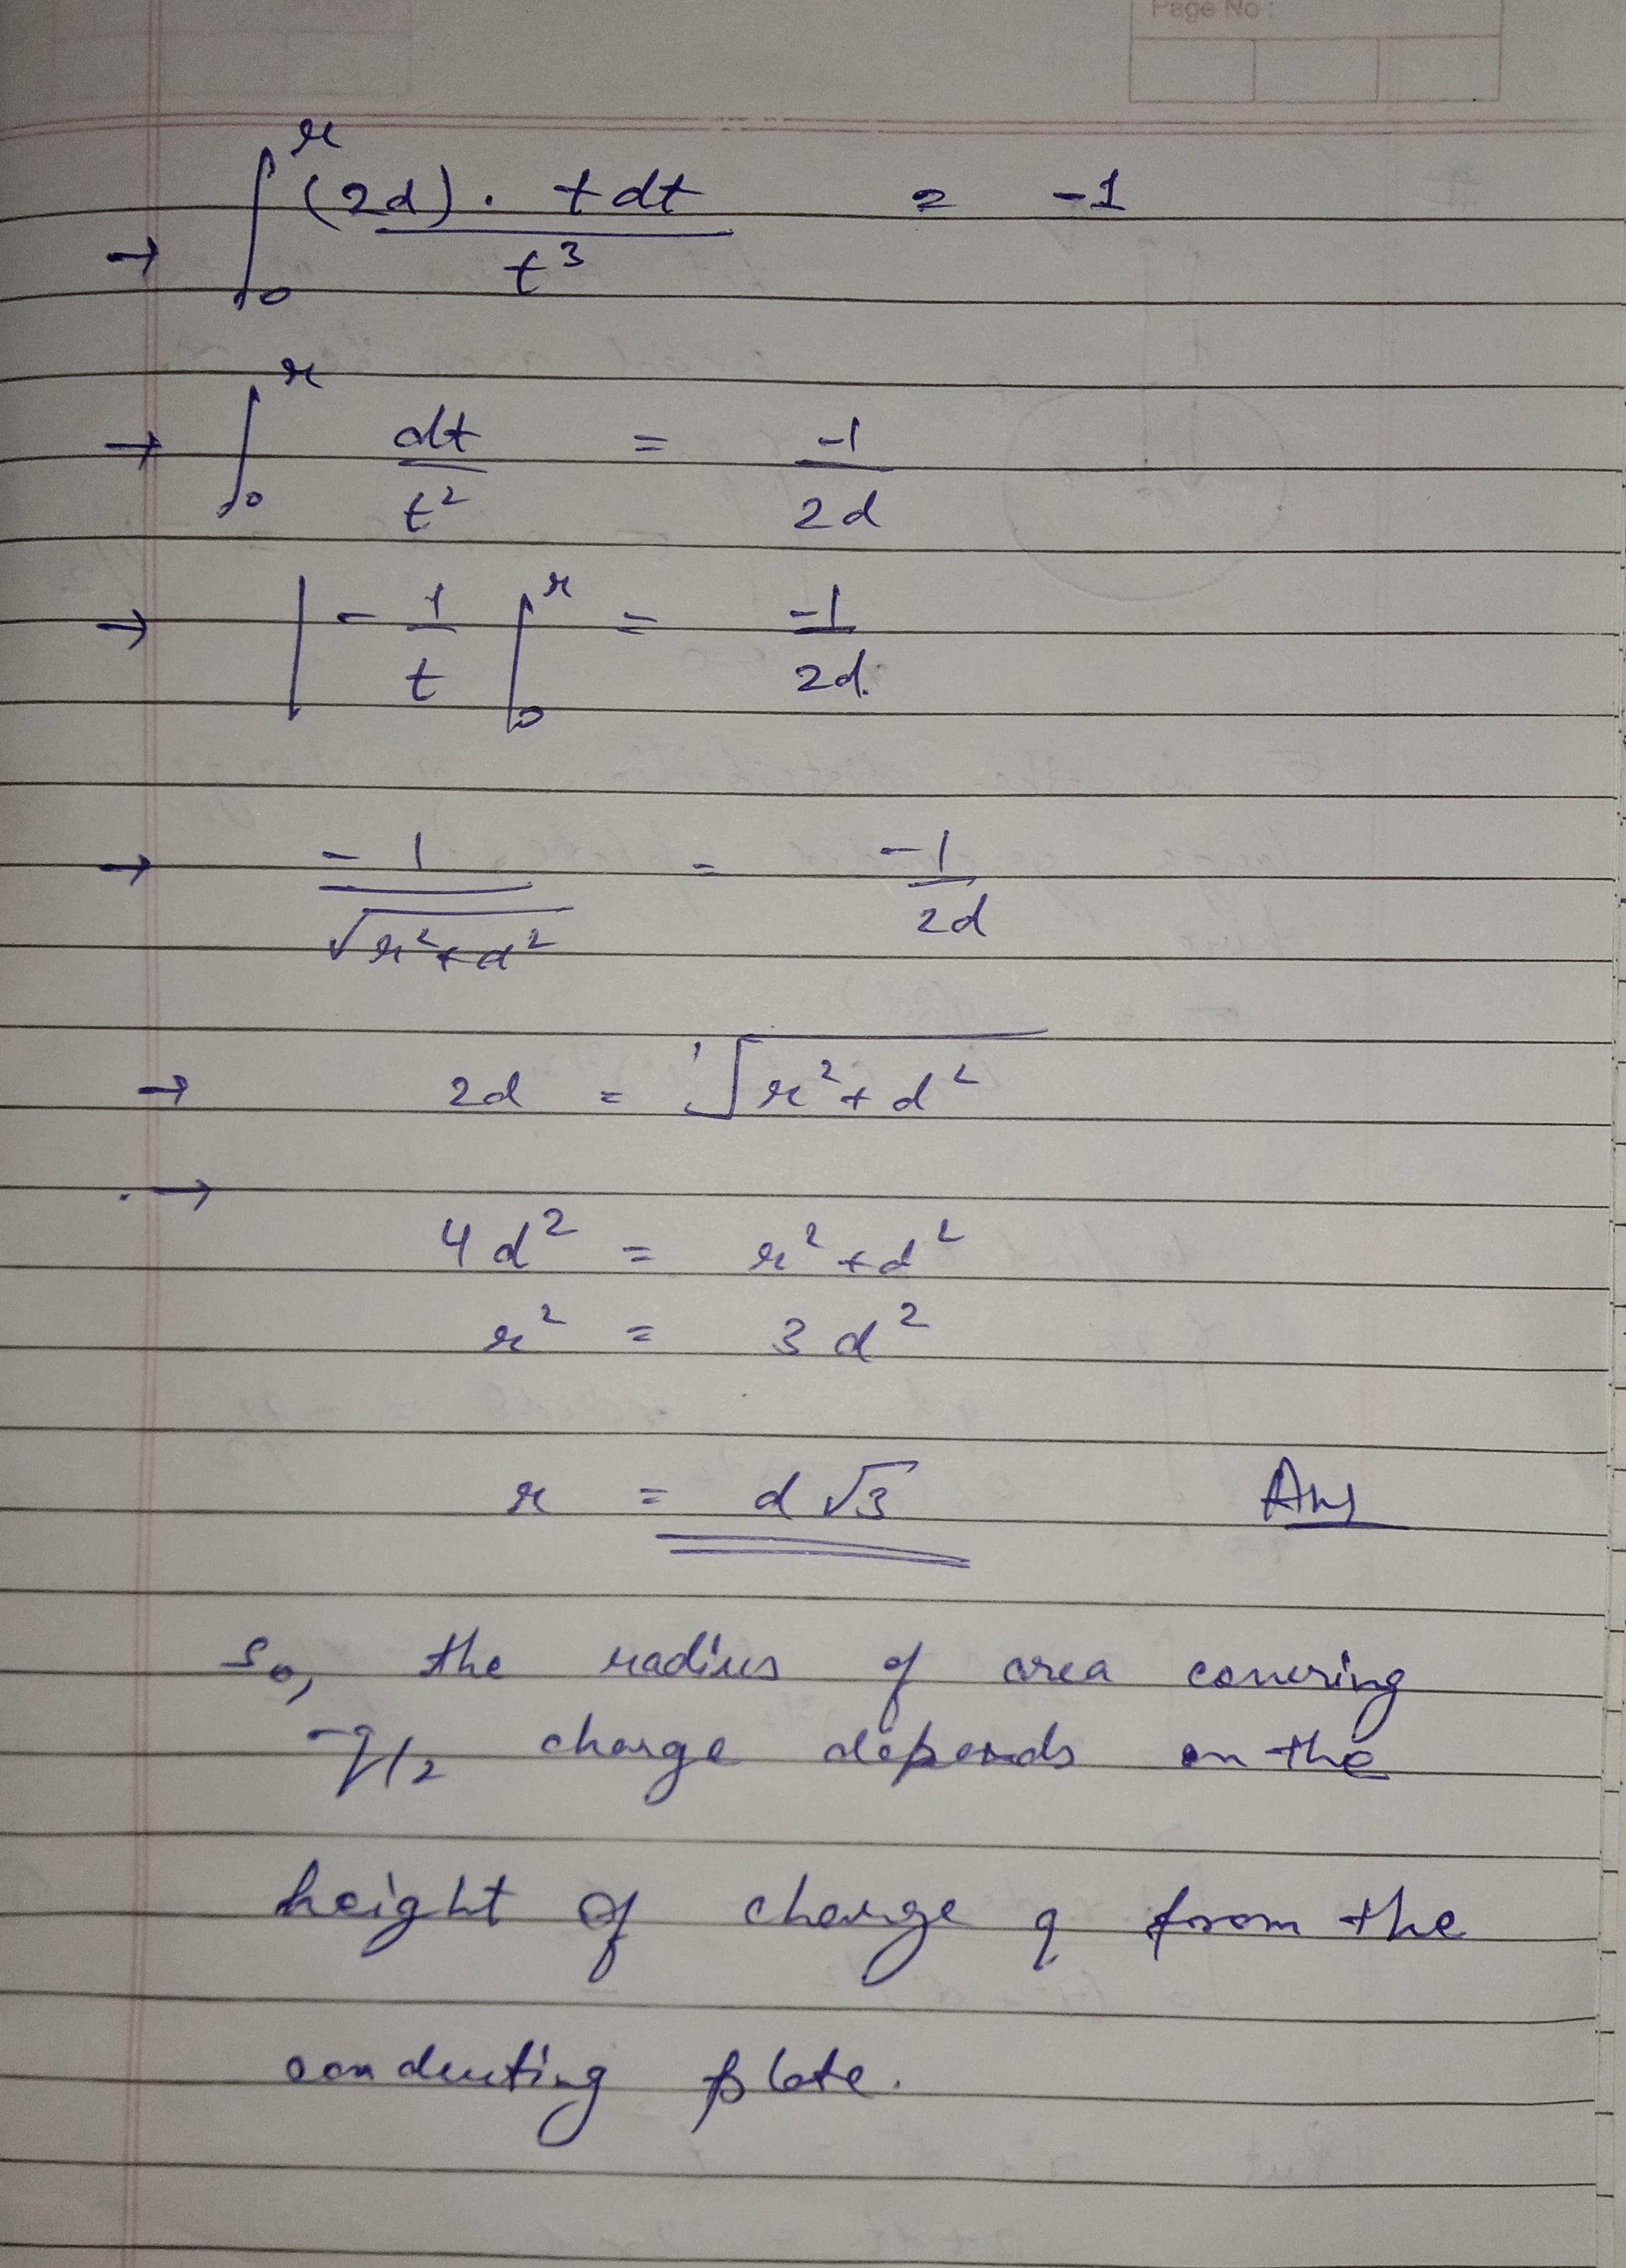 Page No :
→ ∫₀ʳ (2d) . t dt / t³ = -1
→ ∫₀ʳ dt / t² = -1 / 2d
→ | - 1 / t |₀ʳ = -1 / 2d.
→ - 1 / √(r² + d²) = -1 / 2d
→ 2d = √(r² + d²)
. → 4d² = r² + d²
r² = 3d²
r = d√3 Ans
So, the radius of area covering
-q/2 charge depends on the
height of charge q from the
conducting plate.